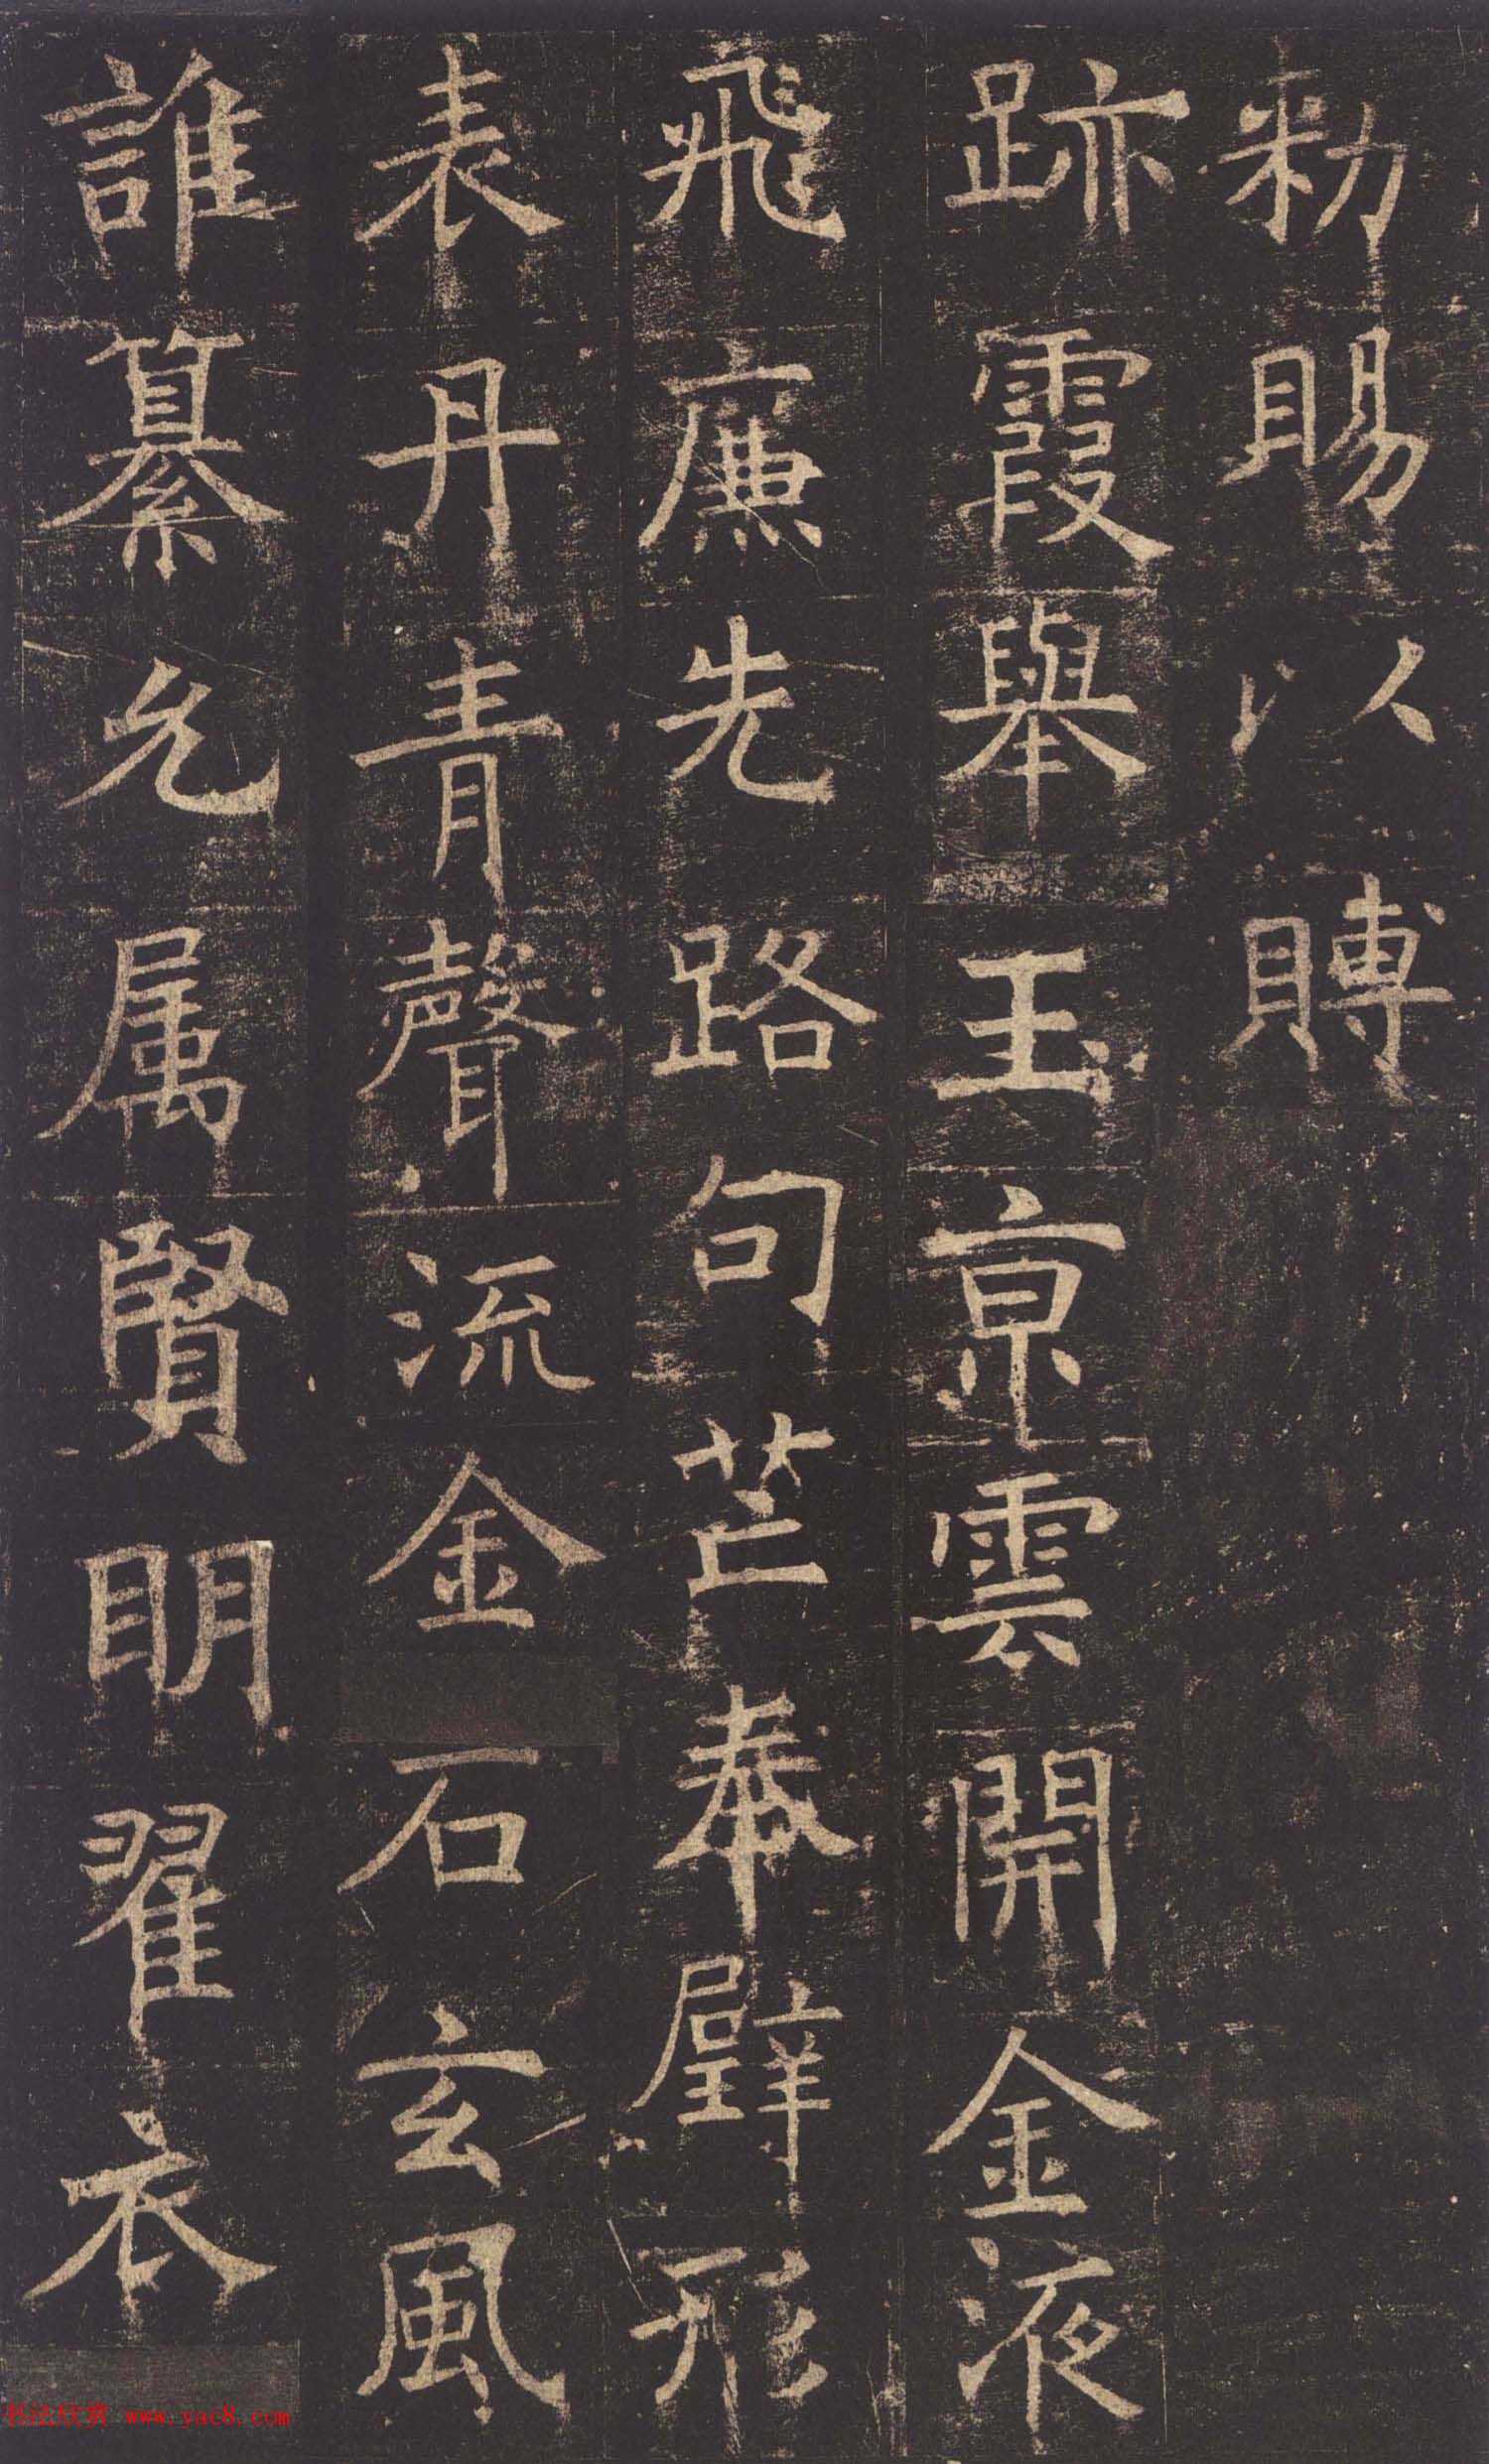 勑賜以賻
跡霞舉玉京雲開金液
飛廉先路句芒奉璧形
表丹青聲流金石玄風
誰纂允属賢明翟衣
书法欣赏 www.yac8.com